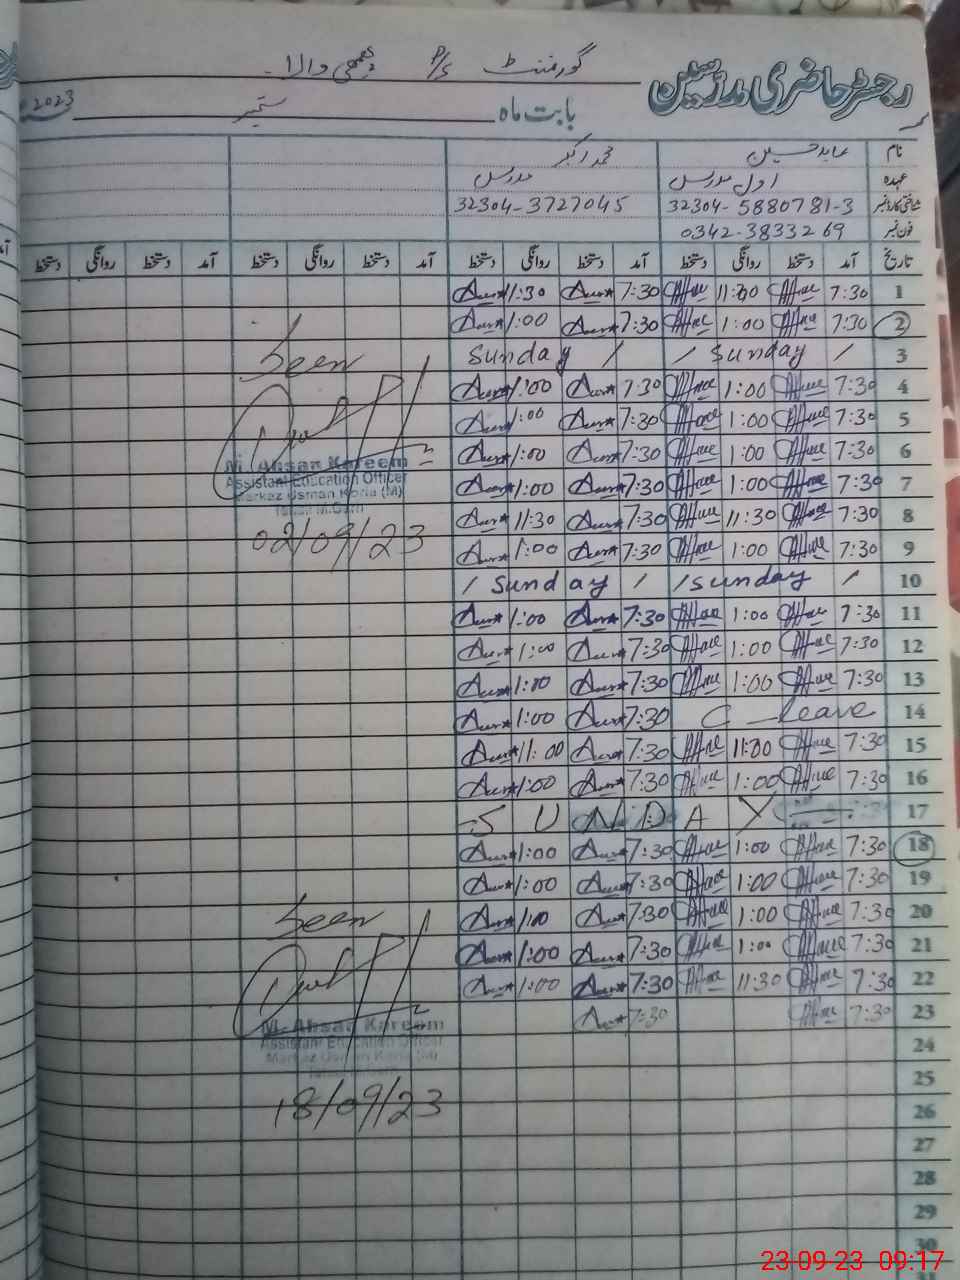 رجسٹر حاضری مدرسین گورنمنٹ P/S والا
بابت ماہ ستمبر 2023
نام عابد حسین محمد اکبر
عہدہ اول مدرس مدرس
شناختی کارڈ نمبر 32304-5880781-3 32304-3727045
فون نمبر 0342-3833269
تاریخ آمد دستخط روانگی دستخط آمد دستخط روانگی دستخط آمد دستخط روانگی دستخط آمد دستخط روانگی دستخط آمد
1 7:30 11:00 7:30 11:30
2 7:30 1:00 7:30 1:00
3 / Sunday / / Sunday
4 7:30 1:00 7:30 1:00
5 7:30 1:00 7:30 1:00
6 7:30 1:00 7:30 1:00
7 7:30 1:00 7:30 1:00
8 7:30 11:30 7:30 11:30
9 7:30 1:00 7:30 1:00
10 / Sunday / / Sunday /
11 7:30 1:00 7:30 1:00
12 7:30 1:00 7:30 1:00
13 7:30 1:00 7:30 1:00
14 C-leave 7:30 1:00
15 7:30 11:00 7:30 11:00
16 7:30 1:00 7:30 1:00
17 SUNDAY
18 7:30 1:00 7:30 1:00
19 7:30 1:00 7:30 1:00
20 7:30 1:00 7:30 1:00
21 7:30 1:00 7:30 1:00
22 7:30 11:30 7:30 1:00
23 7:30 7:30
24
25
26
27
28
29
30
Seen
M. Ahsan Kareem
Assistant Education Officer
Markaz Usman Koria (M)
02/09/23
Seen
M. Ahsan Kareem
Assistant Education Officer
Markaz Usman Koria (M)
18/09/23
23-09-23 09:17